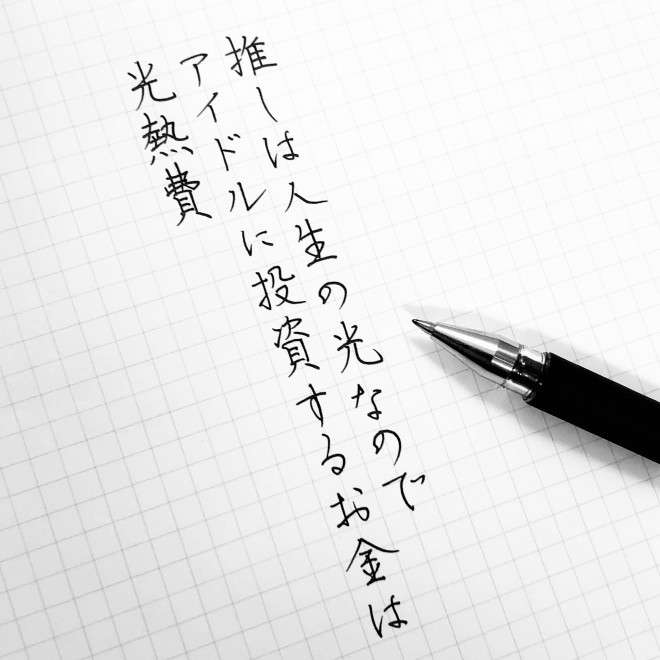 推しは人生の光なので
アイドルに投資するお金は
光熱費